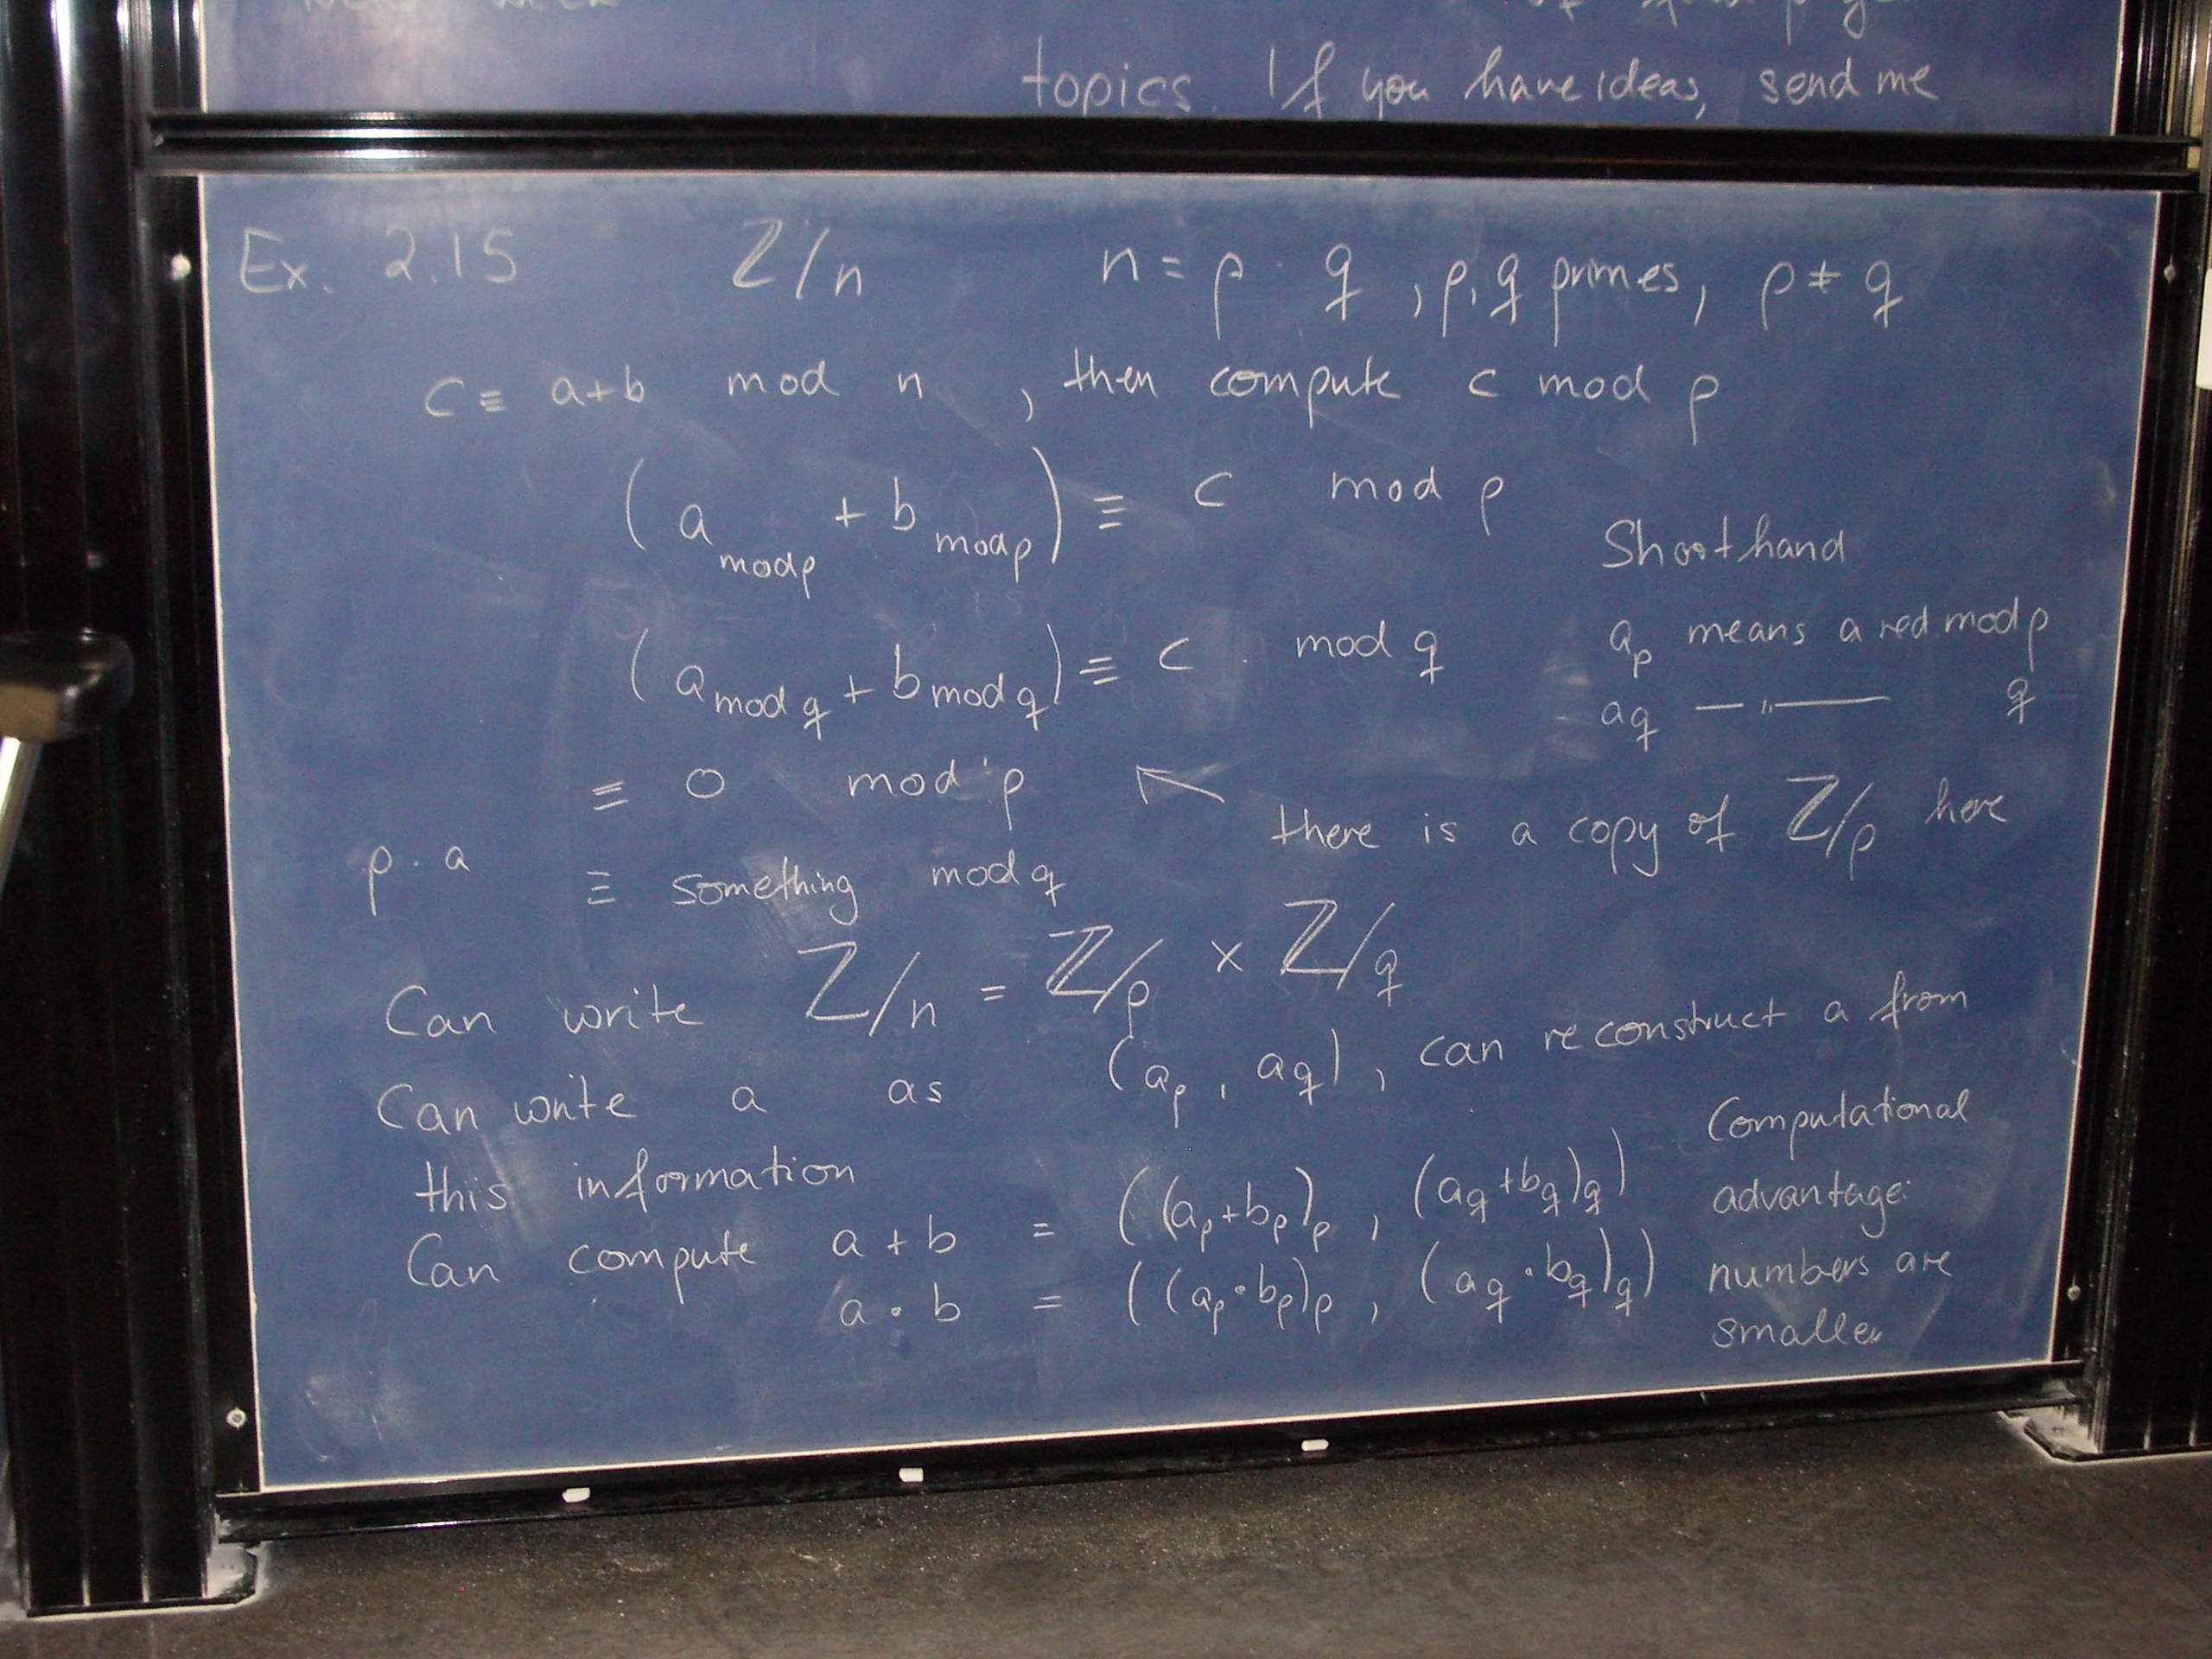 topics. If you have ideas, send me
Ex. 2.15 ℤ/n n = p · q , p, q primes, p ≠ q
c ≡ a+b mod n , then compute c mod p
(a mod p + b mod p) ≡ c mod p
Shorthand
(a mod q + b mod q) ≡ c mod q
a_p means a red. mod p
a_q — „ —— q
≡ 0 mod p
there is a copy of ℤ/p here
p · a
≡ something mod q
Can write ℤ/n = ℤ/p × ℤ/q
Can write a as (a_p , a_q) , can reconstruct a from
this information
Can compute a + b = ((a_p+b_p)_p , (a_q+b_q)_q)
a · b = ((a_p·b_p)_p , (a_q·b_q)_q)
Computational
advantage:
numbers are
smaller